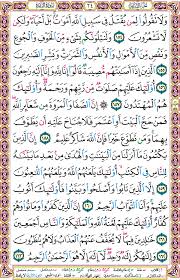 وَلَا تَقُولُوا لِمَن يُقْتَلُ فِي سَبِيلِ اللَّهِ أَمْوَاتٌ بَلْ أَحْيَاءٌ وَلَٰكِن
لَّا تَشْعُرُونَ ١٥٤ وَلَنَبْلُوَنَّكُم بِشَيْءٍ مِّنَ الْخَوْفِ وَالْجُوعِ
وَنَقْصٍ مِّنَ الْأَمْوَالِ وَالْأَنفُسِ وَالثَّمَرَاتِ وَبَشِّرِ الصَّابِرِينَ ١٥٥
الَّذِينَ إِذَا أَصَابَتْهُم مُّصِيبَةٌ قَالُوا إِنَّا لِلَّهِ وَإِنَّا إِلَيْهِ رَاجِعُونَ ١٥٦
أُولَٰئِكَ عَلَيْهِمْ صَلَوَاتٌ مِّن رَّبِّهِمْ وَرَحْمَةٌ وَأُولَٰئِكَ
هُمُ الْمُهْتَدُونَ ١٥٧ إِنَّ الصَّفَا وَالْمَرْوَةَ مِن شَعَائِرِ اللَّهِ
فَمَنْ حَجَّ الْبَيْتَ أَوِ اعْتَمَرَ فَلَا جُنَاحَ عَلَيْهِ أَن يَطَّوَّفَ
بِهِمَا وَمَن تَطَوَّعَ خَيْرًا فَإِنَّ اللَّهَ شَاكِرٌ عَلِيمٌ ١٥٨ إِنَّ الَّذِينَ
يَكْتُمُونَ مَا أَنزَلْنَا مِنَ الْبَيِّنَاتِ وَالْهُدَىٰ مِن بَعْدِ مَا بَيَّنَّاهُ
لِلنَّاسِ فِي الْكِتَابِ أُولَٰئِكَ يَلْعَنُهُمُ اللَّهُ وَيَلْعَنُهُمُ اللَّاعِنُونَ ١٥٩
إِلَّا الَّذِينَ تَابُوا وَأَصْلَحُوا وَبَيَّنُوا فَأُولَٰئِكَ أَتُوبُ عَلَيْهِمْ
وَأَنَا التَّوَّابُ الرَّحِيمُ ١٦٠ إِنَّ الَّذِينَ كَفَرُوا وَمَاتُوا وَهُمْ كُفَّارٌ
أُولَٰئِكَ عَلَيْهِمْ لَعْنَةُ اللَّهِ وَالْمَلَائِكَةِ وَالنَّاسِ أَجْمَعِينَ ١٦١
خَالِدِينَ فِيهَا لَا يُخَفَّفُ عَنْهُمُ الْعَذَابُ وَلَا هُمْ يُنظَرُونَ ١٦٢
وَإِلَٰهُكُمْ إِلَٰهٌ وَاحِدٌ لَّا إِلَٰهَ إِلَّا هُوَ الرَّحْمَٰنُ الرَّحِيمُ ١٦٣